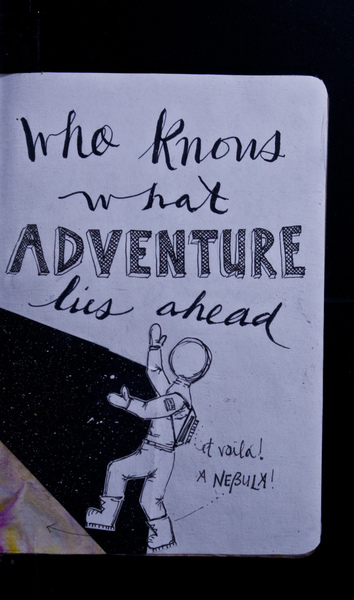 who knows
what
ADVENTURE
lies ahead
et voilà!
A NEBULA!